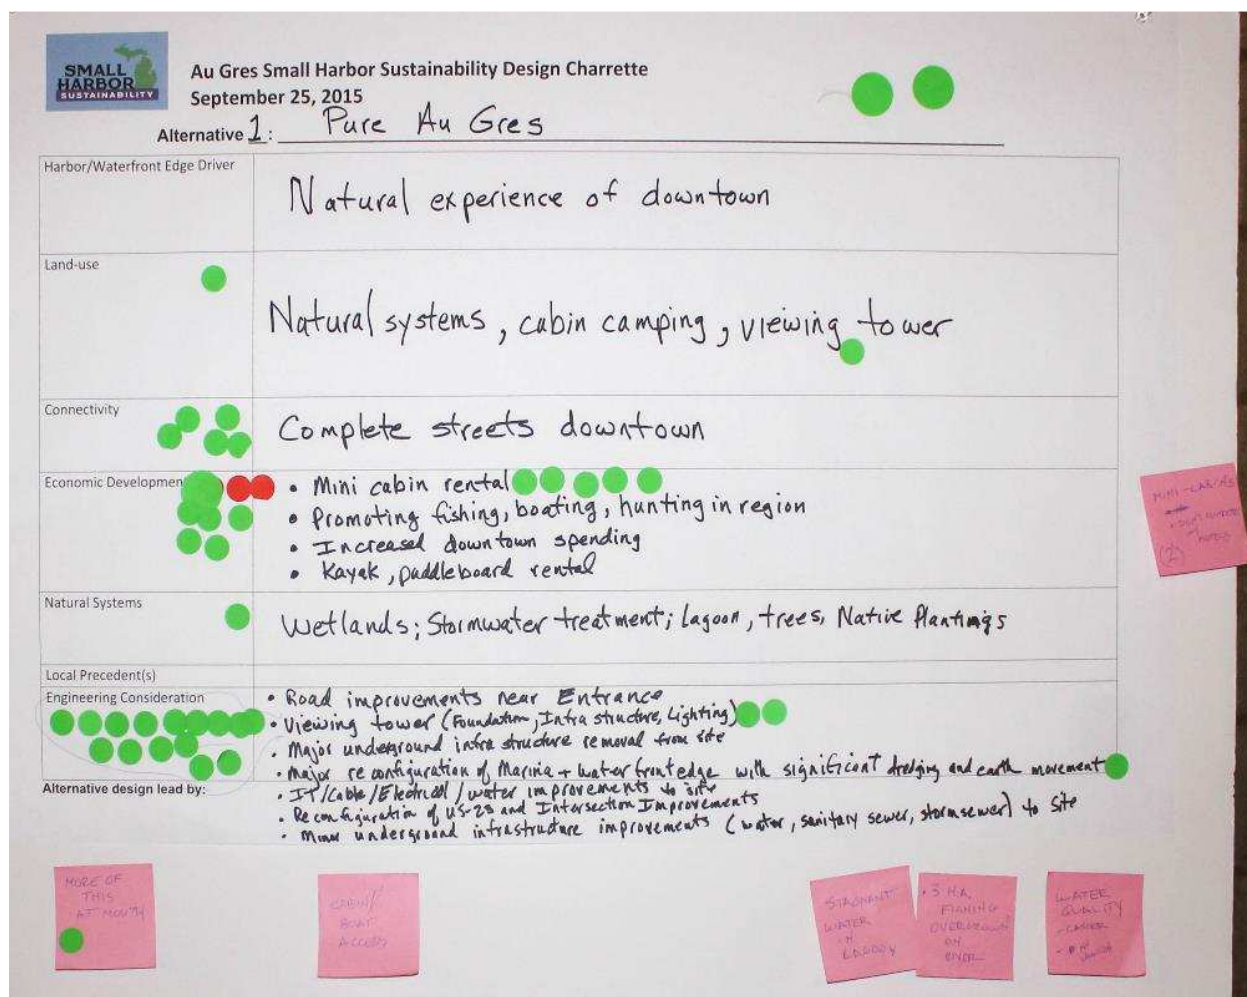 SMALL
HARBOR
SUSTAINABILITY
Au Gres Small Harbor Sustainability Design Charrette
September 25, 2015
Alternative 1: Pure Au Gres
Harbor/Waterfront Edge Driver
Natural experience of downtown
Land-use
Natural systems, cabin camping, viewing tower
Connectivity
Complete streets downtown
Economic Developmen
• Mini cabin rental
• Promoting fishing, boating, hunting in region
• Increased downtown spending
• Kayak, paddleboard rental
Natural Systems
Wetlands; Stormwater treatment; lagoon, trees, Native Plantings
Local Precedent(s)
Engineering Consideration
• Road improvements near Entrance
• Viewing tower (Foundation, Infra structure, Lighting)
• Major underground infra structure removal from site
• Major reconfiguration of Marina + waterfront edge with significant dredging and earth movement
Alternative design lead by:
• IT/Cable/Electrical/water improvements to site
• Reconfiguration of US-23 and Intersection Improvements
• Minor underground infrastructure improvements (water, sanitary sewer, stormsewer) to site
MINI-CABINS
(2)
MORE OF
THIS
AT MOUTH
CABIN/
BOAT
ACCESS
STAGNANT
WATER
IN
LAGOON
• 3 H.A.
FISHING
ON
RIVER
WATER
QUALITY